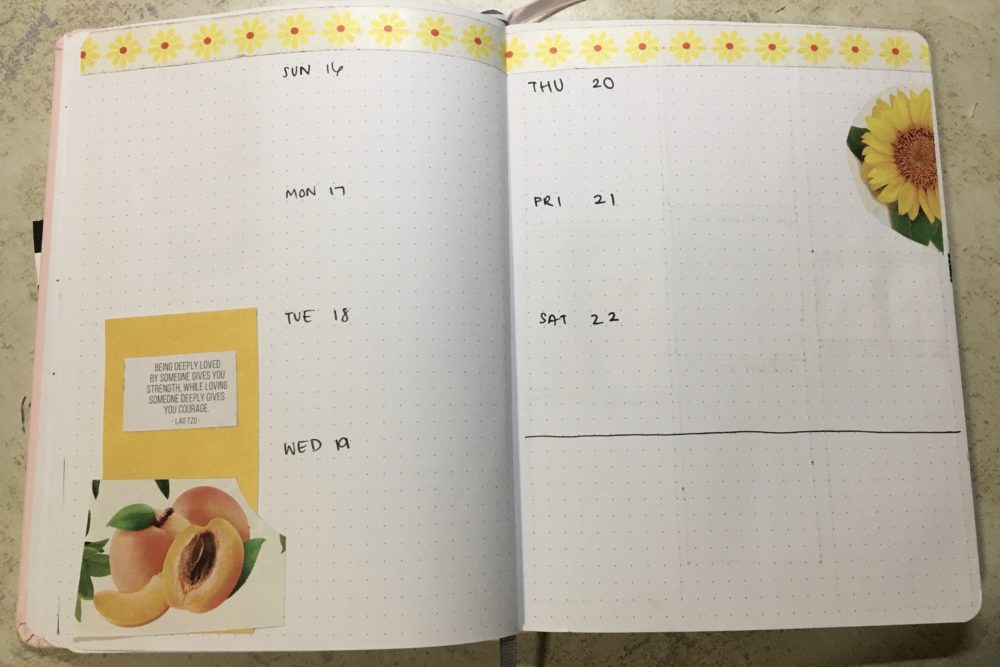 SUN 16
MON 17
TUE 18
BEING DEEPLY LOVED
BY SOMEONE GIVES YOU
STRENGTH, WHILE LOVING
SOMEONE DEEPLY GIVES
YOU COURAGE.
- LAO TZU -
WED 19
THU 20
FRI 21
SAT 22